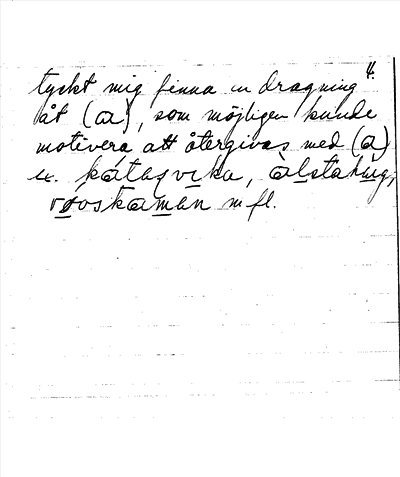 4.
tyckt mig finna en dragning
åt (a), som möjligen kunde
motivera att återgivas med (a)
ex.
m fl.